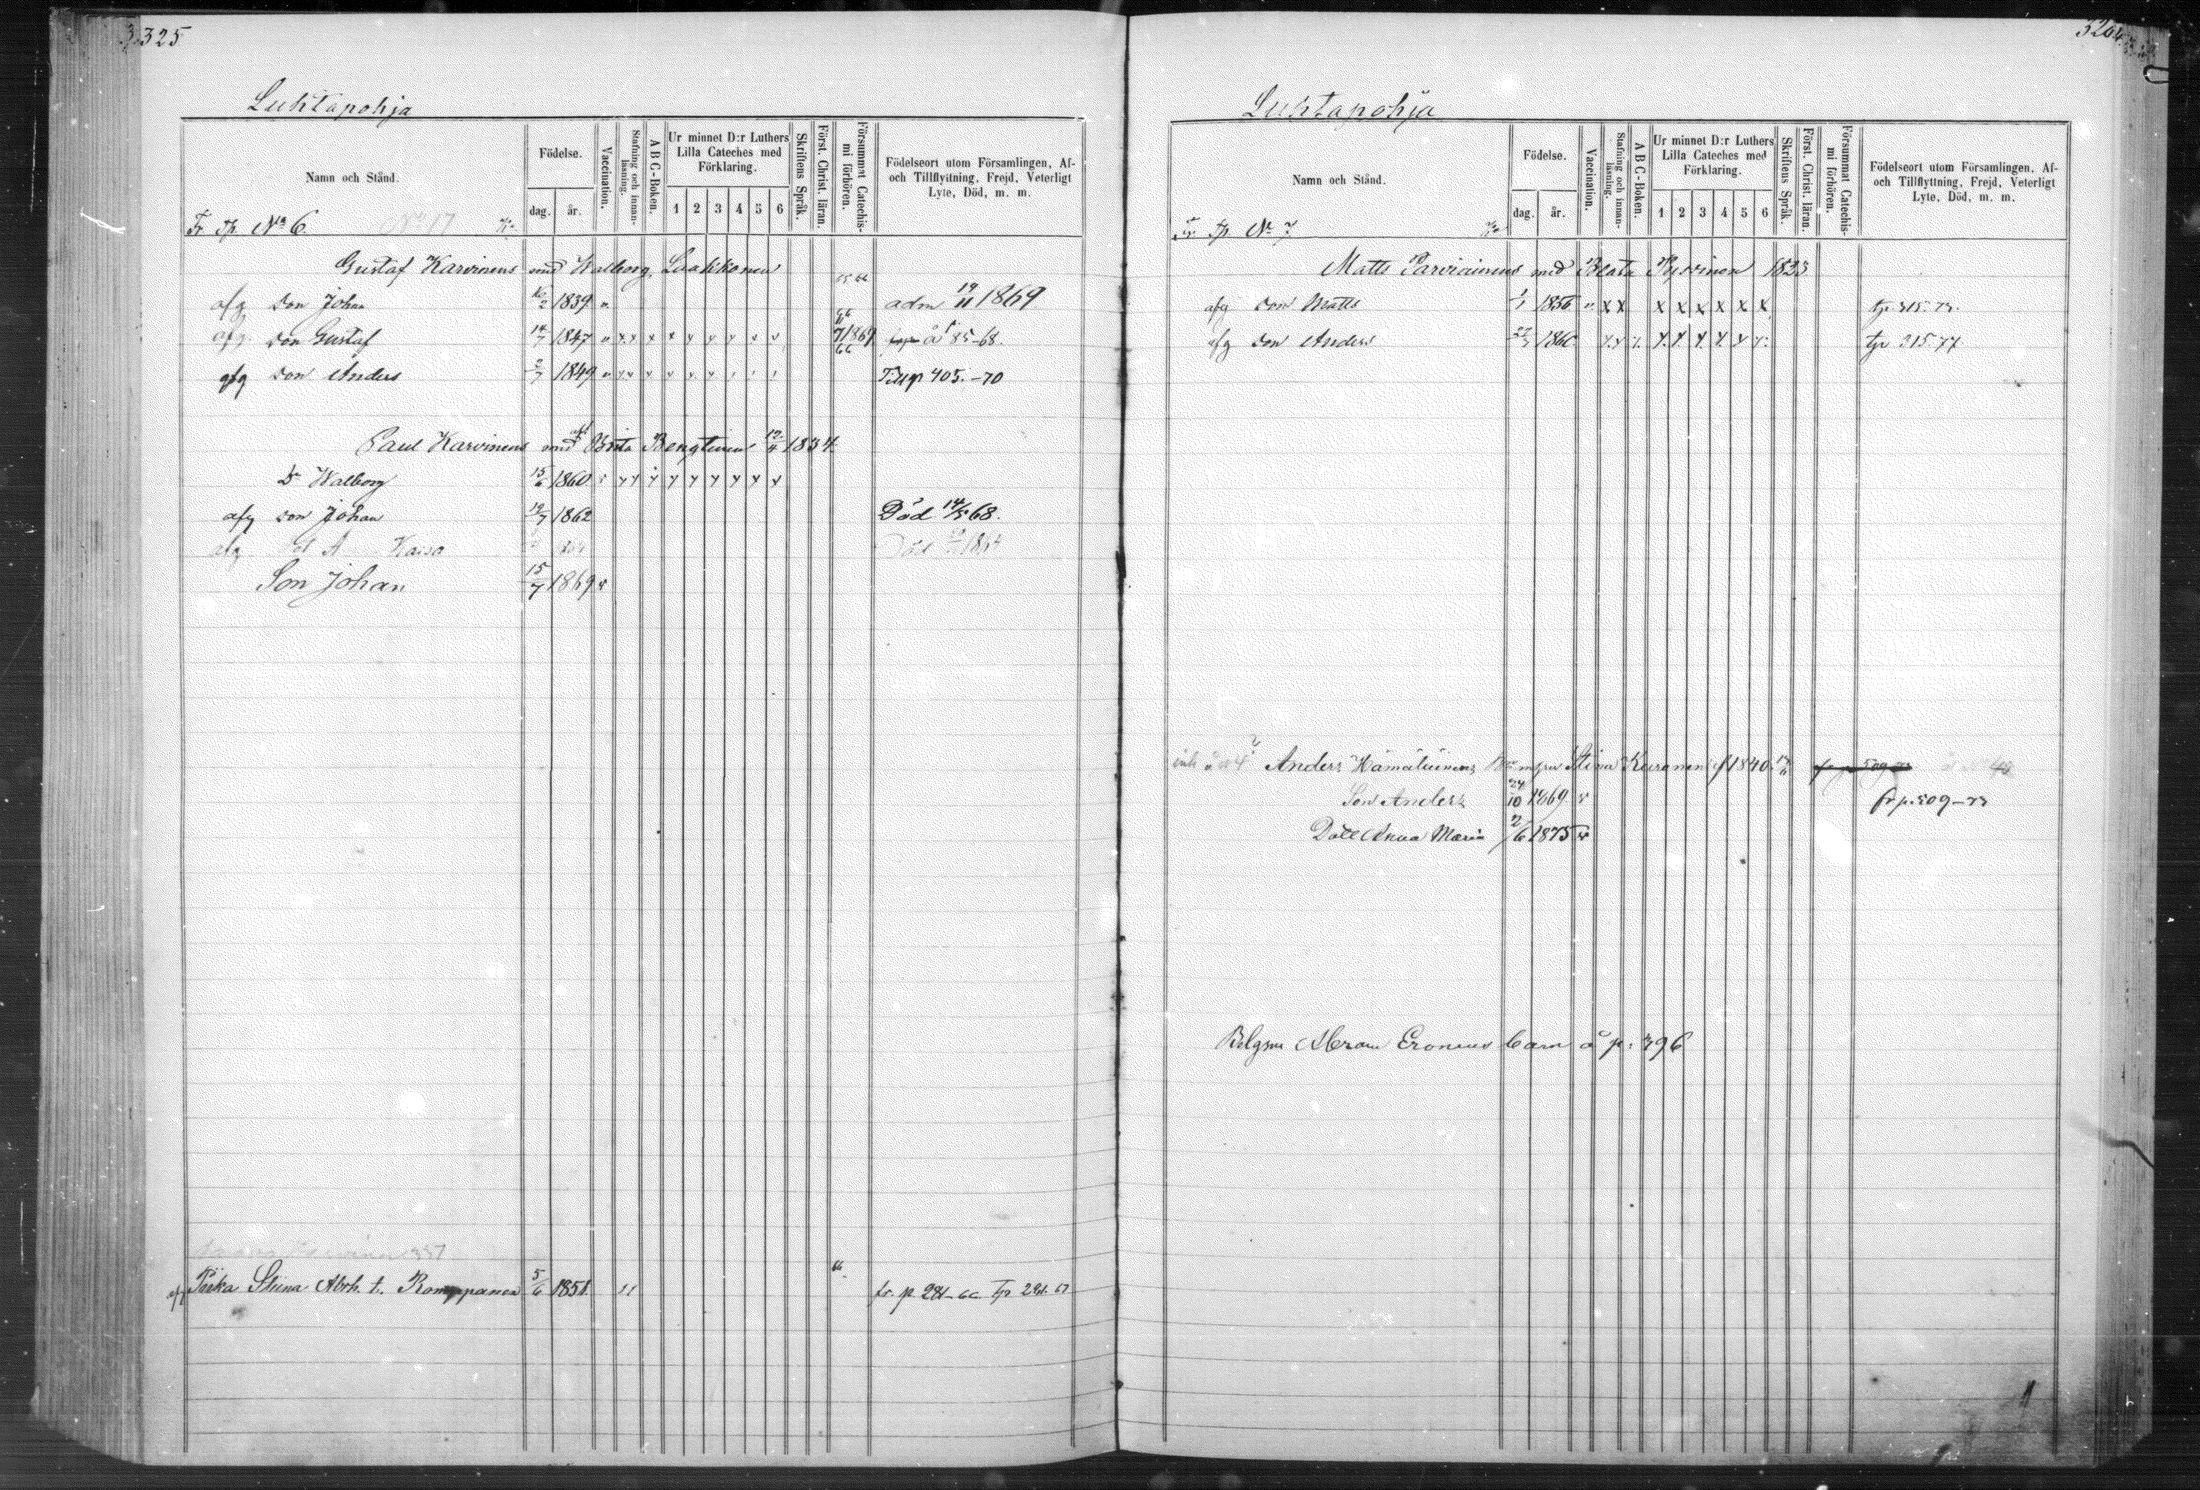 325
Luhtapohja
Namn och Stånd.
Födelse.
dag.
år.
Vaccination.
Stafning och innanläsning.
A B C-Boken.
Ur minnet D:r Luthers
Lilla Cateches med
Förklaring.
1 2 3 4 5 6
Skriftens Språk.
Först. Christ. läran.
Försummat Catechismi förhören.
Födelseort utom Församlingen, Af-
och Tillflyttning, Frejd, Veterligt
Lyte, Död, m. m.
No 6. No 17
Gustaf Karvinens med Walborg Laakkonen
afg Son Johan 16/2 1839 adm 19/11 1869
afg Son Gustaf 14/7 1847 å 85-68.
afg Son Anders 2/7 1849 Till p 405.-70
Paul Karvinens med Brita Bengtinen 12/4 1834.
Dr Walborg 15/6 1860
afg Son Johan 1862 Död 14/5 68.
afg Kaisa Död
Son Johan 15/7 1869
afg Piika Stina Abrh. t. Romppanen 5/6 1851. fr. p. 281-66 Tp 281.67
Luhtapohja
Namn och Stånd.
Födelse.
dag.
år.
Vaccination.
Stafning och innanläsning.
A B C-Boken.
Ur minnet D:r Luthers
Lilla Cateches med
Förklaring.
1 2 3 4 5 6
Skriftens Språk.
Först. Christ. läran.
Försummat Catechismi förhören.
Födelseort utom Församlingen, Af-
och Tillflyttning, Frejd, Veterligt
Lyte, Död, m. m.
No 7.
Matts Parviainens med Beata Pyrvinen 1833
afg Son Matts 1/1 1856 tp 315.
afg Son Anders 1860 tp 315.77
Anders Hämäläinens Stina Kuronen f 1840
Son Anders 24/10 1869 fr p. 509-
Dott Anna Maria 2/6 1875
Bolgsm Abram Eronens barn å p. 396